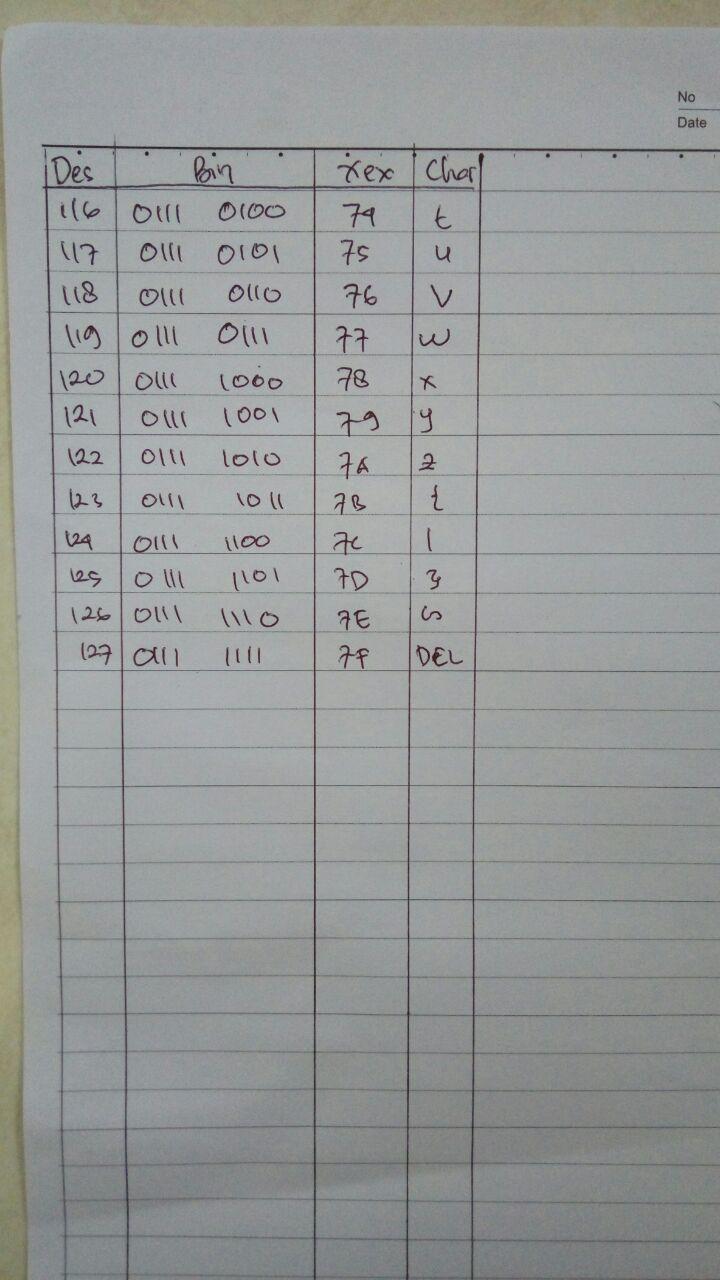 No
Date
Des Bin Hex Char
116 0111 0100 74 t
117 0111 0101 75 u
118 0111 0110 76 v
119 0111 0111 77 w
120 0111 1000 78 x
121 0111 1001 79 y
122 0111 1010 7A z
123 0111 1011 7B {
124 0111 1100 7C |
125 0111 1101 7D }
126 0111 1110 7E
127 0111 1111 7F DEL